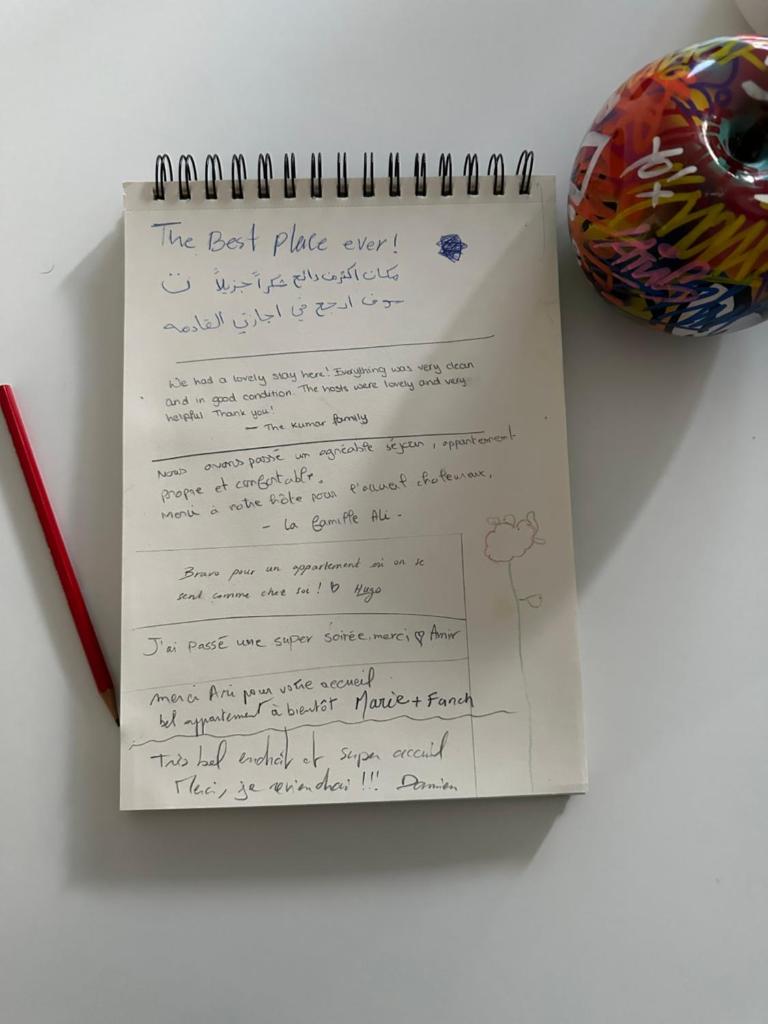 The Best place ever!
مكان اكثر من رائع شكراً جزيلاً
سوف ارجع في اجازتي القادمه
We had a lovely stay here! Everything was very clean
and in good condition. The hosts were lovely and very
helpful Thank you!
— The Kumar family
Nous avons passé un agréable séjour, appartement
propre et confortable.
Merci à notre hôte pour l'accueil chaleureux,
- La famille Ali -
Bravo pour un appartement où on se
sent comme chez soi ! ♡ Hugo
J'ai passé une super soirée, merci ♡ Amir
merci Ari pour votre accueil
bel appartement à bientôt Marie + Fanch
Très bel endroit et super accueil
Merci, je reviendrai !!! Damien